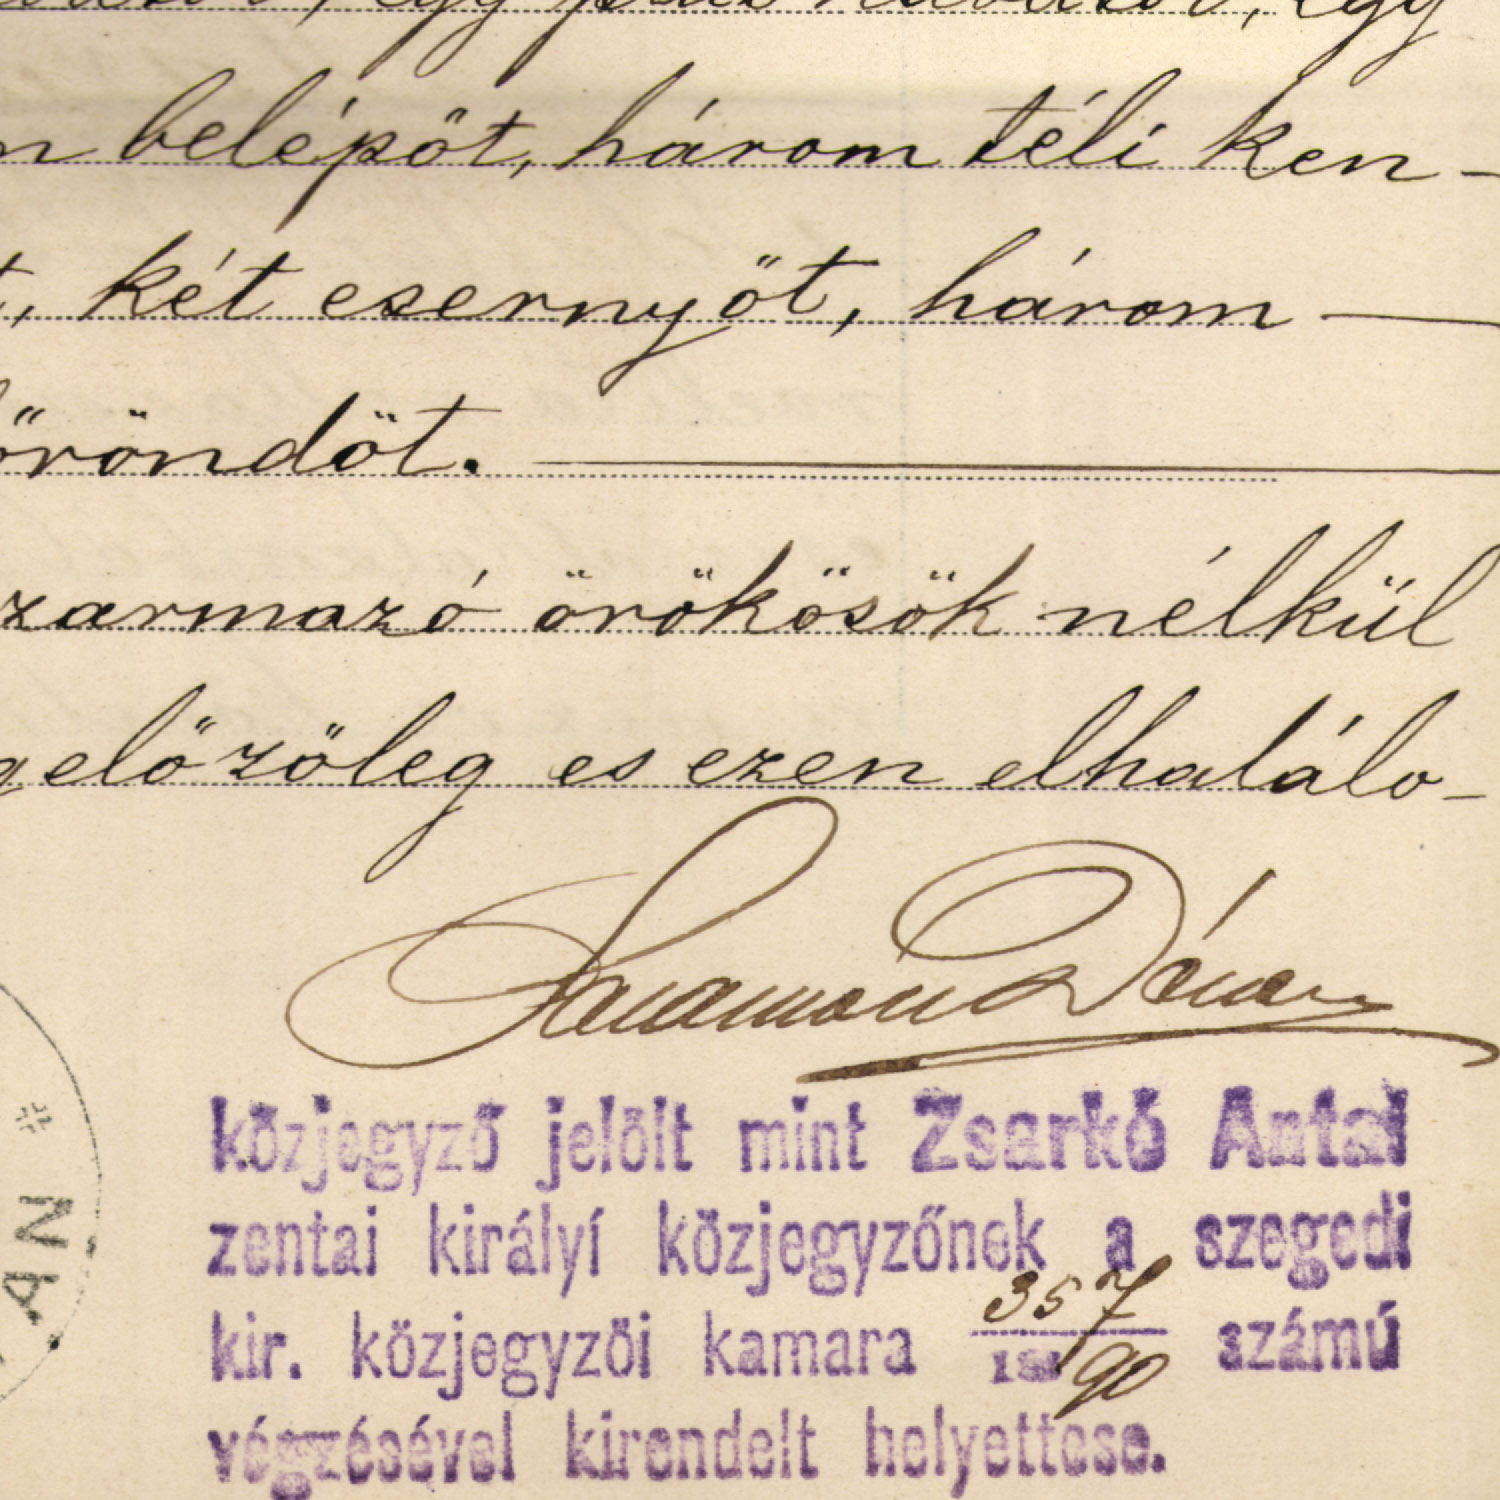 egy pár
n belépőt, három téli ken-
t, két esernyőt, három
őröndöt.
zarmazó örökösök nélkül
gelőzőleg es ezen elhalálo-
Salamon Dénes
közjegyző jelölt mint Zsarkó Antal
zentai királyi közjegyzőnek a szegedi
kir. közjegyzöi kamara 357/1890 számú
végzésével kirendelt helyettese.
AN